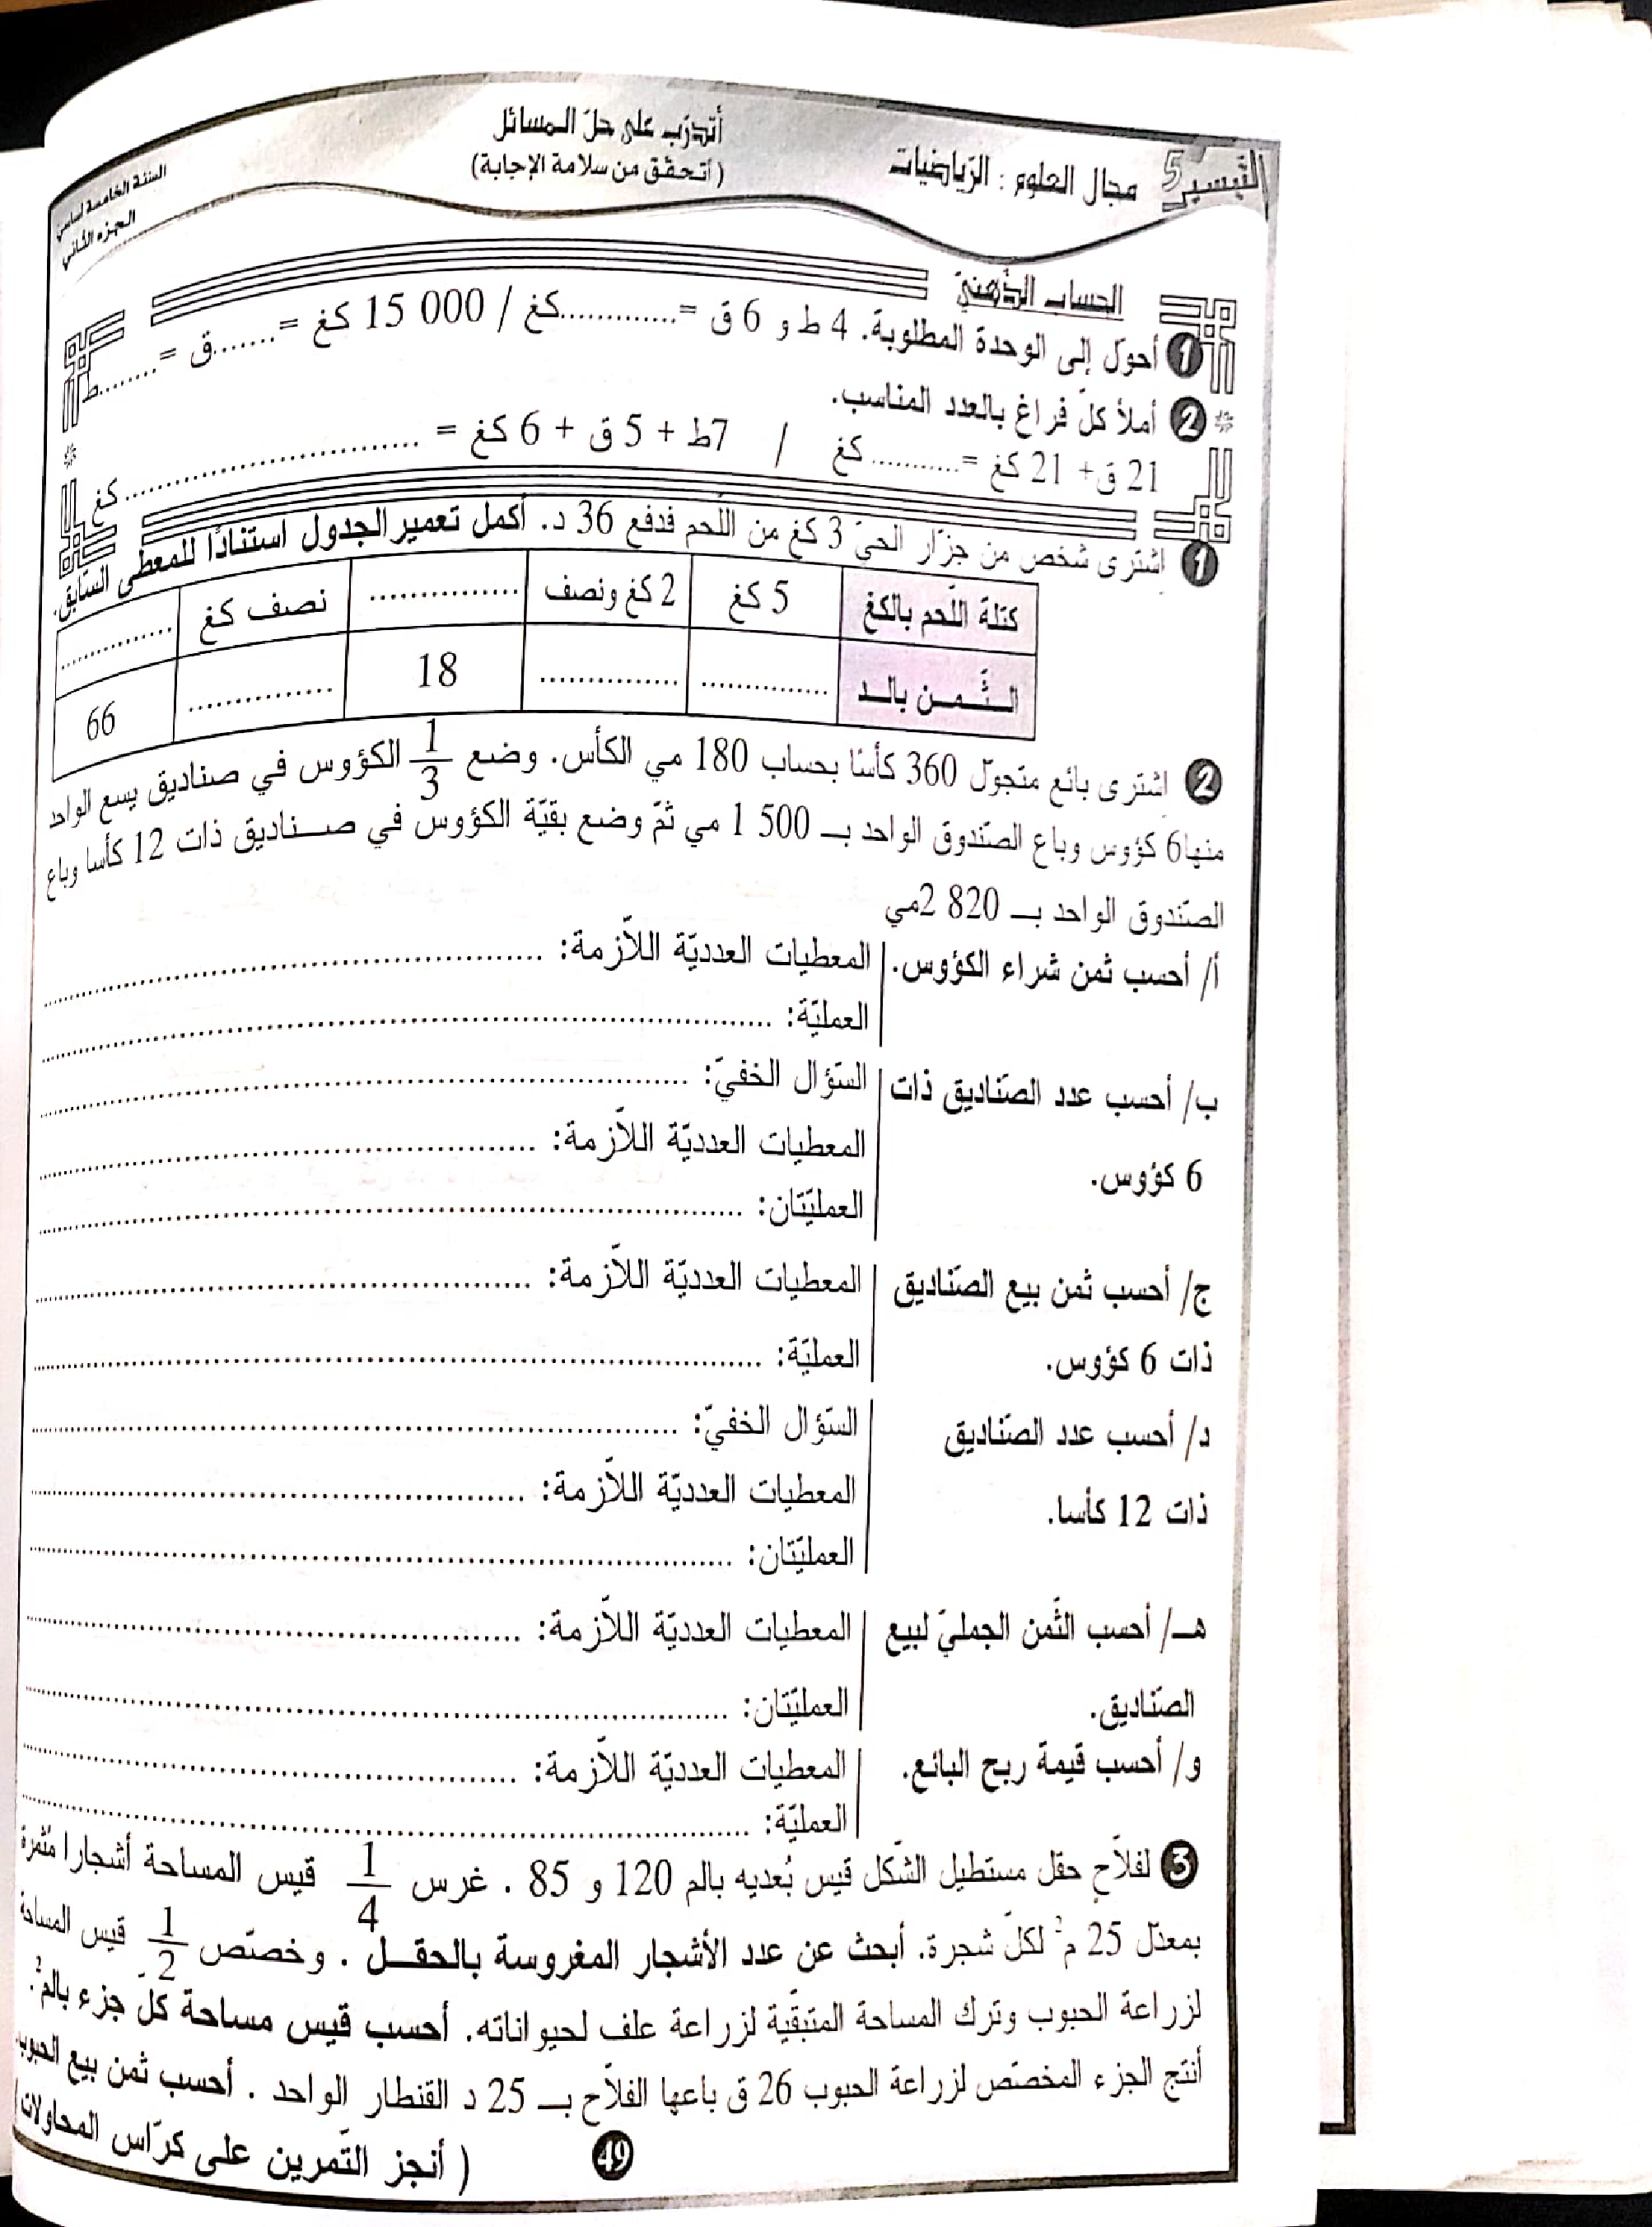 التيسير 5
مجال العلوم : الرّياضيات
أتدرّب على حلّ المسائل
(أتحقّق من سلامة الإجابة)
السنة الخامسة أساسي
الجزء الثاني
الحساب الذّهنيّ
1 أحوّل إلى الوحدة المطلوبة. 4 ط و 6 ق =.............كغ / 000 15 كغ =.......ق =........ط
* 2 أملأ كلّ فراغ بالعدد المناسب. *
21 ق+ 21 كغ =........... كغ / 7ط + 5 ق + 6 كغ = .............................. كغ
1 اشترى شخص من جزّار الحيّ 3 كغ من اللّحم فدفع 36 د. أكمل تعمير الجدول استنادًا للمعطى السّابق.
كتلة اللّحم بالكغ | 5 كغ | 2 كغ ونصف | ............... | نصف كغ | ............
الـثّـمـن بالـد | ............. | .............. | 18 | .............. | 66
2 اشترى بائع متجوّل 360 كأسًا بحساب 180 مي الكأس. وضع 1/3 الكؤوس في صناديق يسع الواحد
منها 6 كؤوس وباع الصّندوق الواحد بـ 500 1 مي ثمّ وضع بقيّة الكؤوس في صـناديق ذات 12 كأسا وباع
الصّندوق الواحد بـ 820 2مي
أ/ أحسب ثمن شراء الكؤوس. | المعطيات العدديّة اللاّزمة: ..............................
العمليّة: ..............................
ب/ أحسب عدد الصّناديق ذات | السّؤال الخفيّ: ..............................
المعطيات العدديّة اللاّزمة: ..............................
6 كؤوس.
العمليّتان: ..............................
ج/ أحسب ثمن بيع الصّناديق | المعطيات العدديّة اللاّزمة: ..............................
ذات 6 كؤوس. | العمليّة: ..............................
د/ أحسب عدد الصّناديق | السّؤال الخفيّ: ..............................
المعطيات العدديّة اللاّزمة: ..............................
ذات 12 كأسا.
العمليّتان: ..............................
هـ/ أحسب الثّمن الجمليّ لبيع | المعطيات العدديّة اللاّزمة: ..............................
الصّناديق. | العمليّتان: ..............................
و/ أحسب قيمة ربح البائع. | المعطيات العدديّة اللاّزمة: ..............................
العمليّة: ..............................
3 لفلاّحٍ حقل مستطيل الشّكل قيس بُعديه بالم 120 و 85 . غرس 1/4 قيس المساحة أشجارا مُثمرة
بمعدّل 25 م² لكلّ شجرة. أبحث عن عدد الأشجار المغروسة بالحقـل . وخصّص 1/2 قيس المساحة
لزراعة الحبوب وترك المساحة المتبقّية لزراعة علف لحيواناته. أحسب قيس مساحة كلّ جزء بالم².
أنتج الجزء المخصّص لزراعة الحبوب 26 ق باعها الفلاّح بـ 25 د القنطار الواحد . أحسب ثمن بيع الحبوب.
( أنجز التّمرين على كرّاس المحاولات )
49